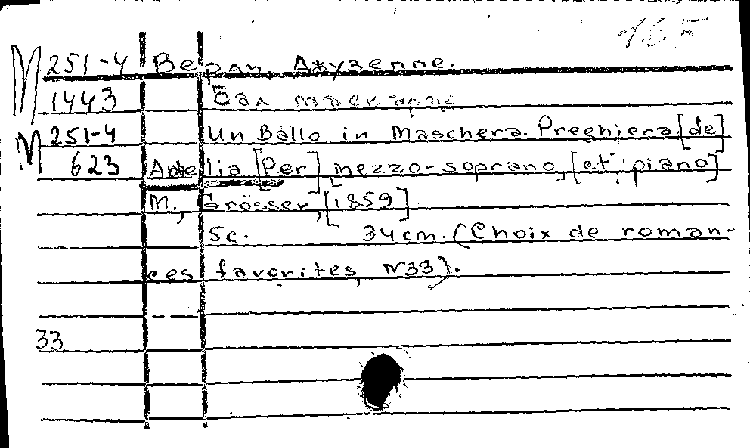 165
М 251-4 Верди, Джузеппе.
1443 Бал маскарад
М 251-4 Un Ballo in Maschera. Preghiera [de]
623 Amelia [Per] mezzo-soprano, [et piano]
М., Grösser, [1859]
5c. 34 cm. (Choix de roman-
ces favorites, N33).
33